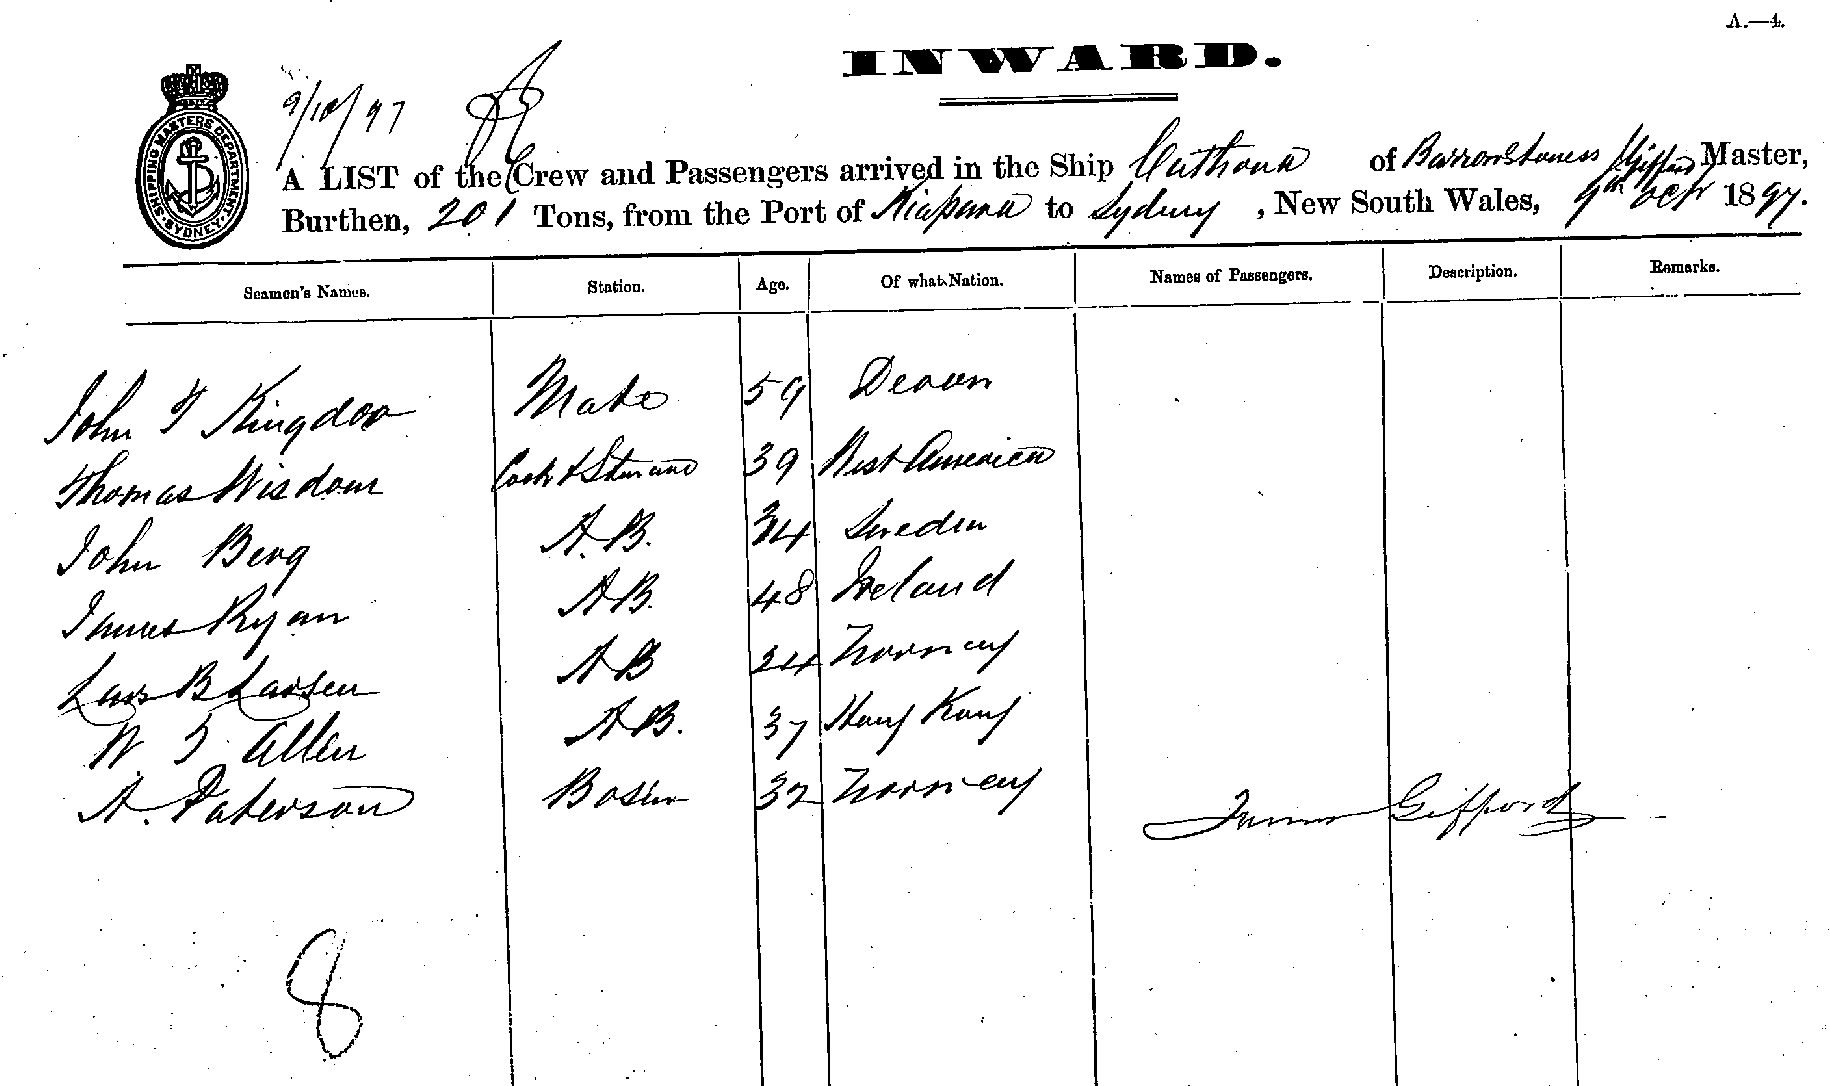 A.—4.
INWARD.
9/10/97
SHIPPING MASTERS DEPARTMENT SYDNEY
A LIST of the Crew and Passengers arrived in the Ship of J Gifford Master,
Burthen, 201 Tons, from the Port of to Sydney, New South Wales, 9th Oct 1897.
Seamen's Names. Station. Age. Of what Nation. Names of Passengers. Description. Remarks.
John Kingdon Mate 59 Devon
Thomas Wisdom Cook & Steward 39 West America
John Berg A.B. 34 Sweden
James Ryan A.B. 48 Ireland
Lars B Larsen A B 24 Norway
W Allen A.B. 37 Hong Kong
A. Paterson Bosun 32 Norway
James Gifford
8